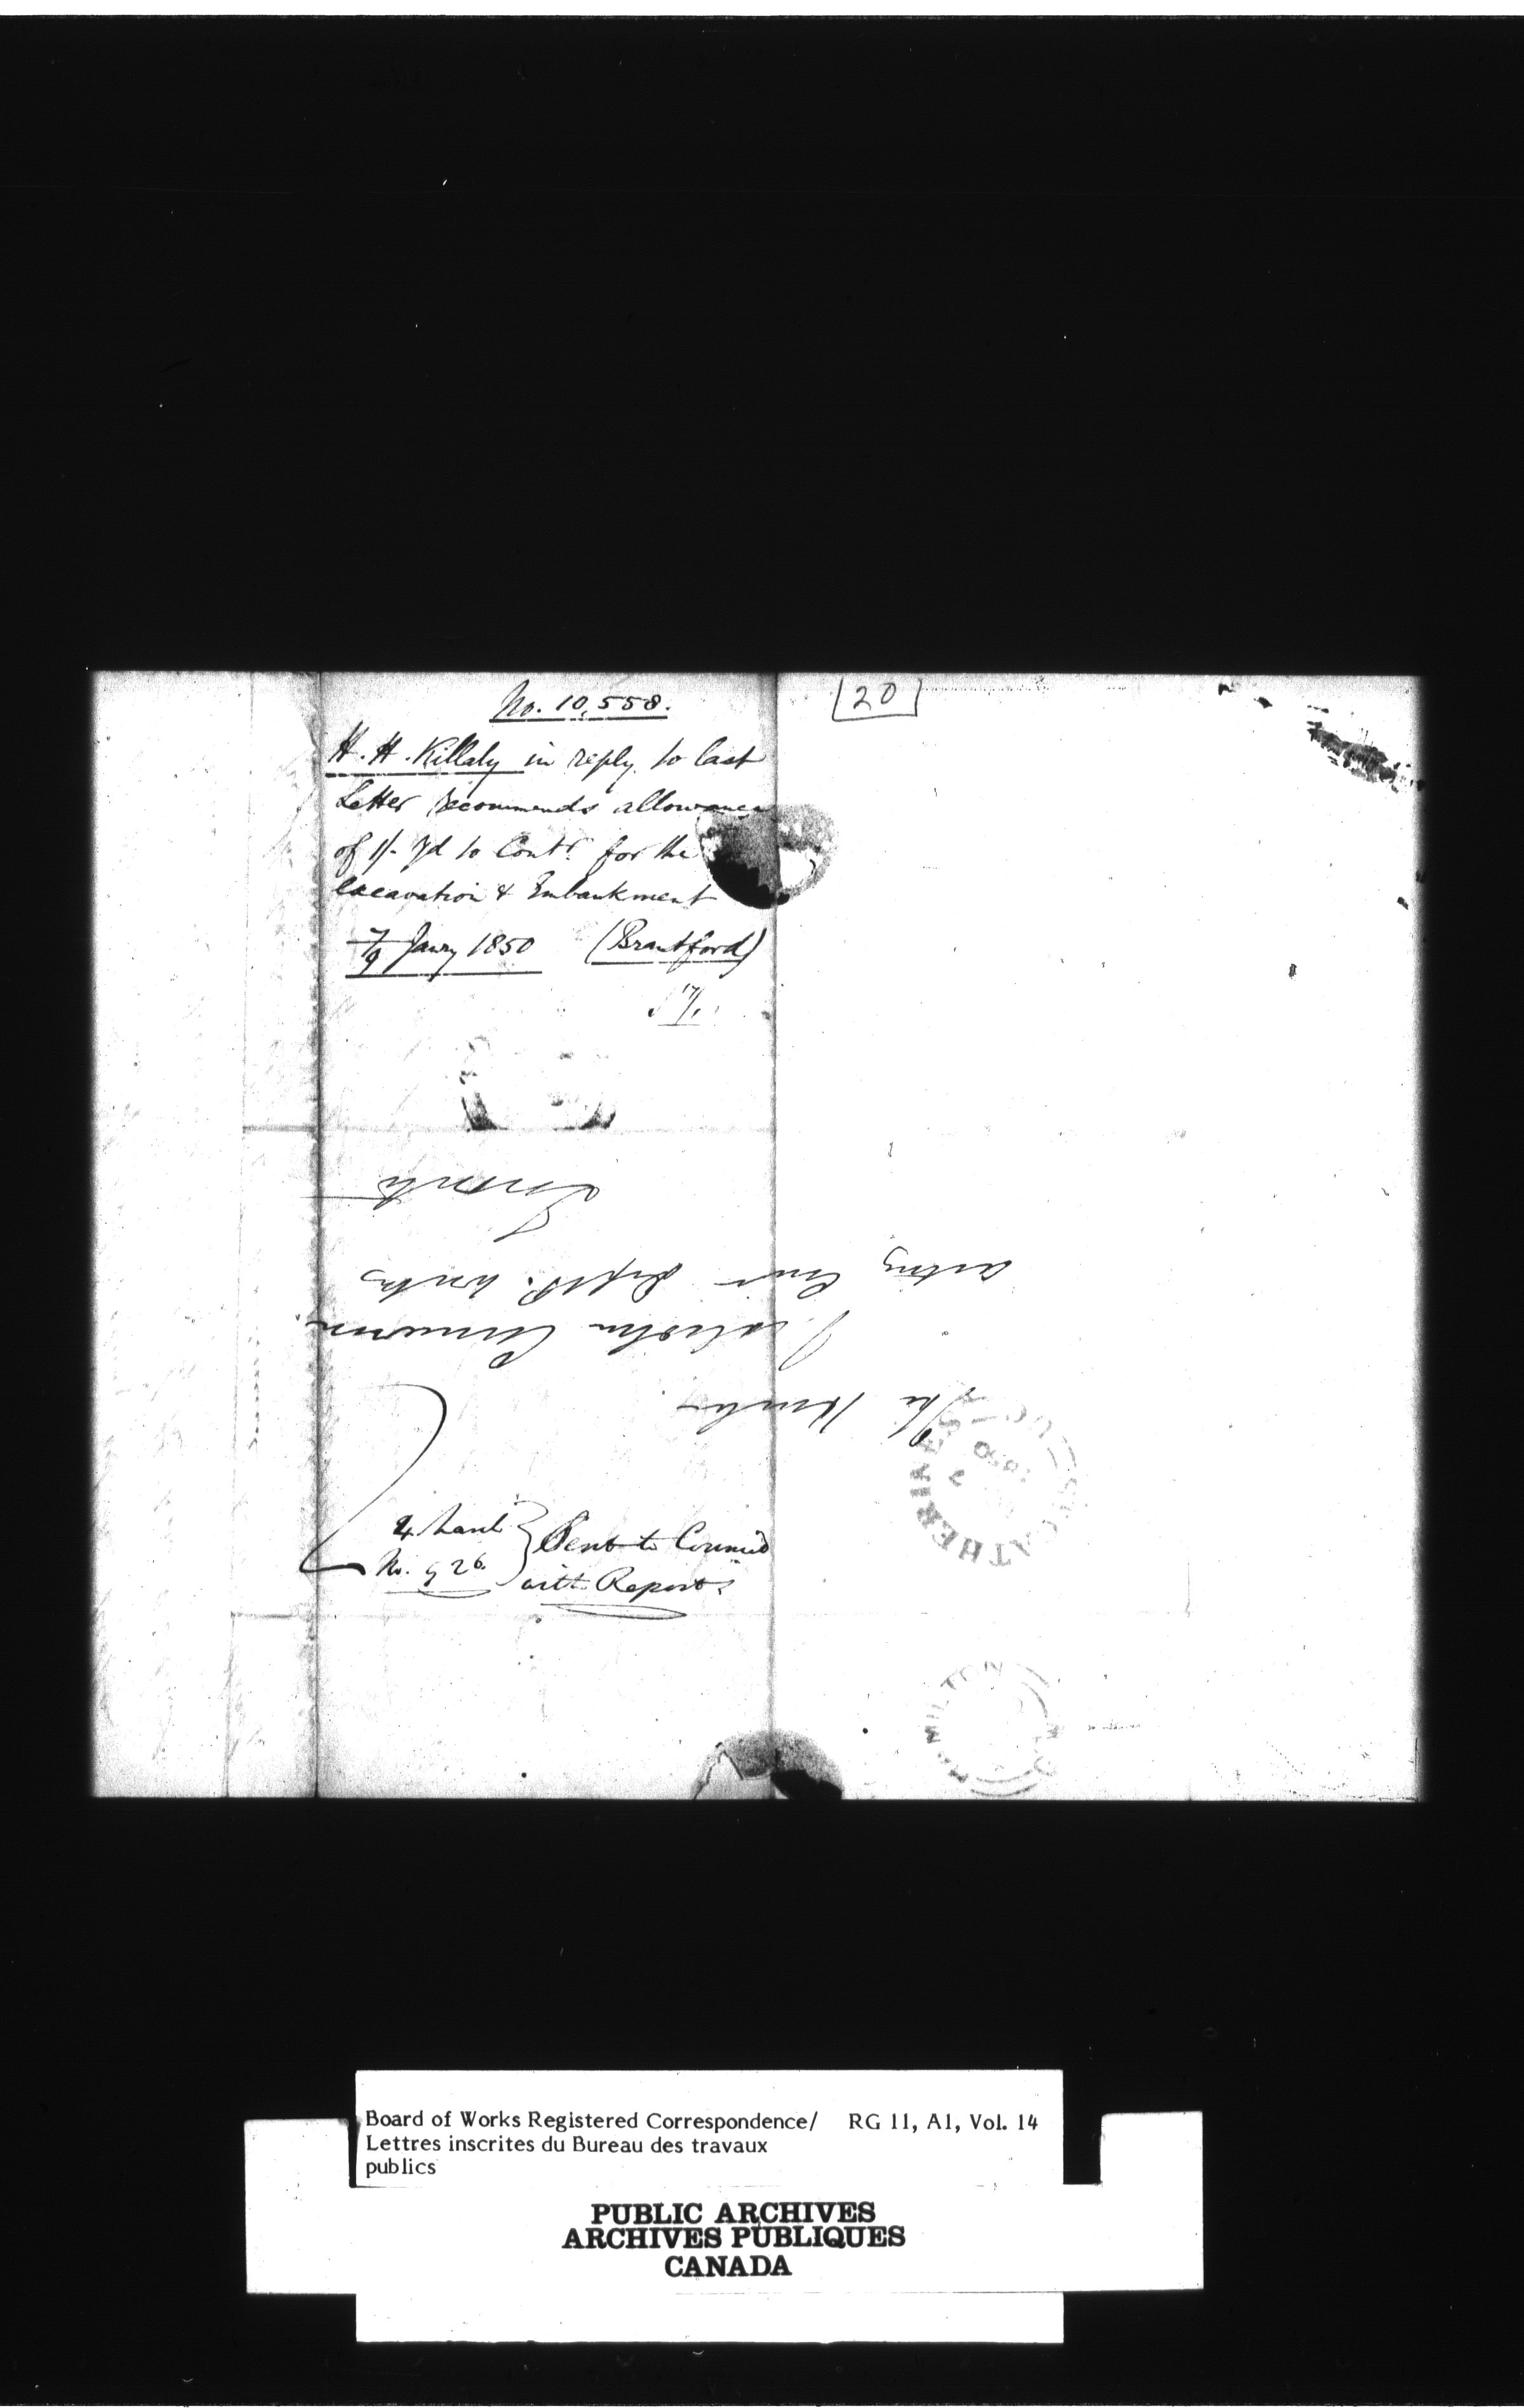 No. 10,558.
[20]
H. H. Killaly in reply to last
Letter recommends allowance
of 1/- yd to Contr. for the
excavation & Embankment
7/9 Jany 1850 (Brantford)
The Honble
Malcolm Cameron
acting Comr Publ. Works
Toronto
No. 926
Sent to Council
with Report
HAMILTON
Board of Works Registered Correspondence/ RG 11, A1, Vol. 14
Lettres inscrites du Bureau des travaux
publics
PUBLIC ARCHIVES
ARCHIVES PUBLIQUES
CANADA